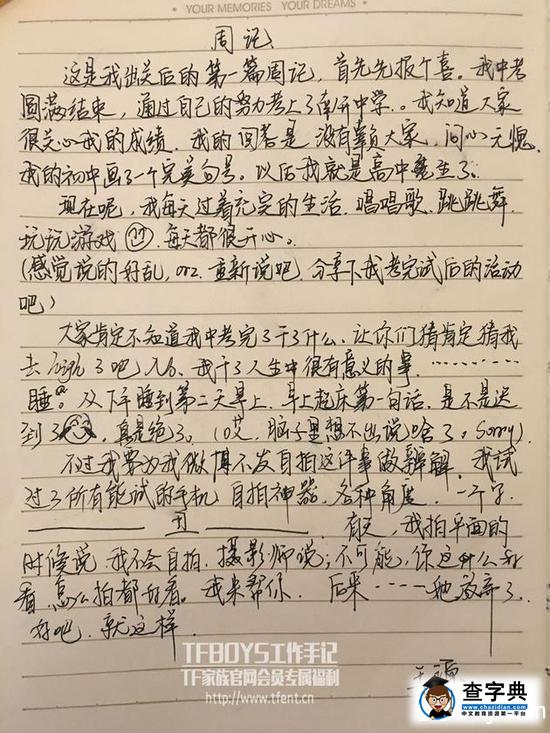 YOUR MEMORIES YOUR DREAMS
周记
这是我出关后的第一篇周记,首先先报个喜。我中考
圆满结束,通过自己的努力考上了南开中学。我知道大家
很关心我的成绩,我的回答是 没有辜负大家,问心无愧
我的初中画了一个完美句号。以后我就是高中毕生了。
现在呢,我每天过着充实的生活,唱唱歌、跳跳舞
玩玩游戏 每天都很开心。
(感觉说的好乱,orz. 重新说吧,分享下我考完试后的活动
吧)
大家肯定不知道我中考完了干了什么、让你们猜肯定猜我
去 了吧,No、我干了人生中很有意义的事………
睡。从下午睡到第二天早上,早上起床第一句话,是不是迟
到了 ,真是绝了。(哎,脑子里想不出说啥了,Sorry)
不过我要为我微博不发自拍这件事做辩解,我试
过了所有能试的手机 自拍神器、各种角度,一个字
丑 有天,我拍平面的
时候说 我不会自拍,摄影师说:不可能,你这什么
看 怎么拍都好看。我来帮你,后来……她放弃了.
好吧,就这样
TFBOYS工作手记
TF家族官网会员专属福利
http://www.tfent.cn
查字典
www.chazidian.com
中文教育资源第一平台